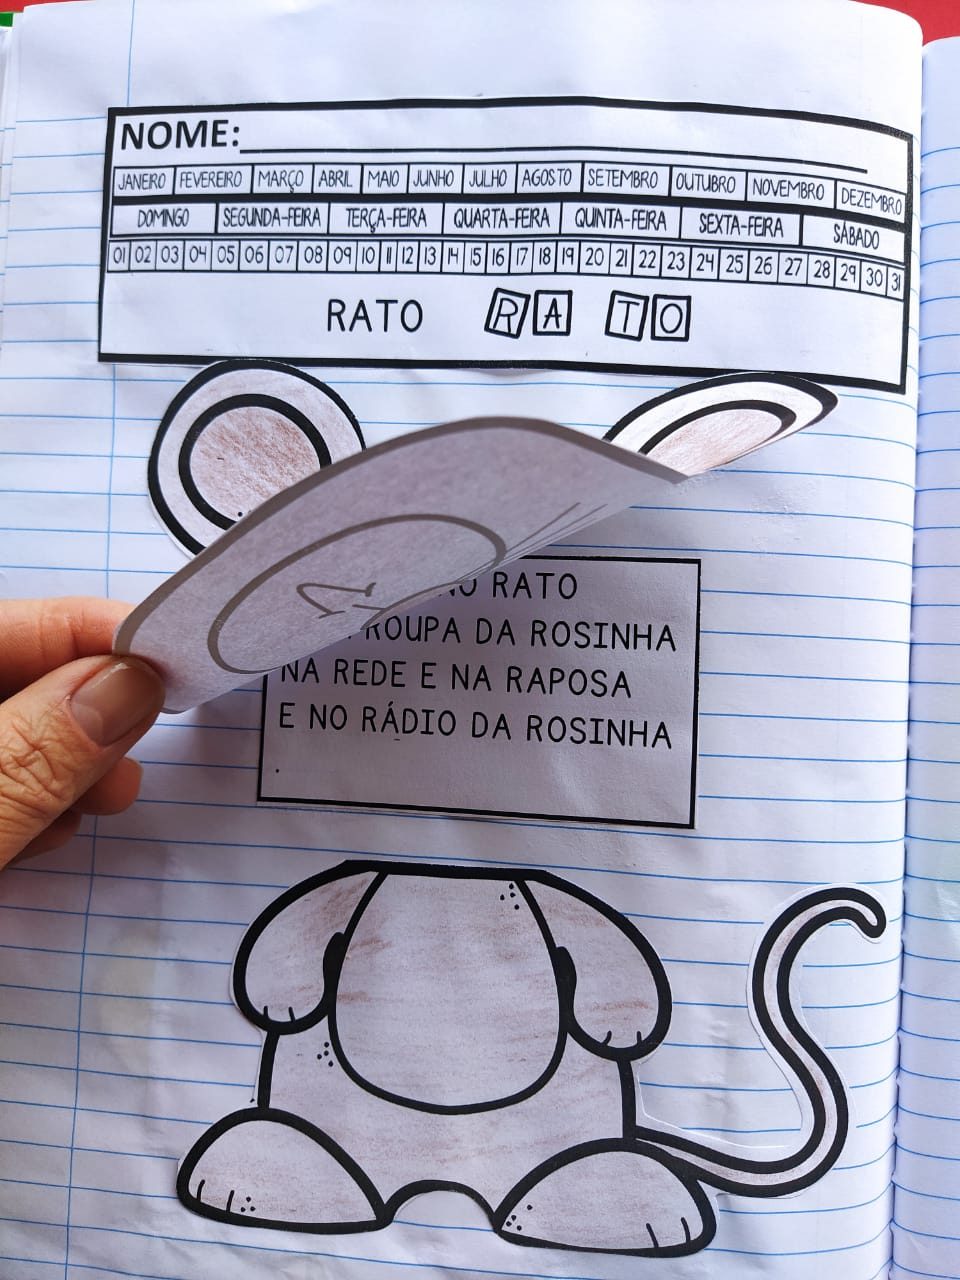 NOME:
JANEIRO FEVEREIRO MARÇO ABRIL MAIO JUNHO JULHO AGOSTO SETEMBRO OUTUBRO NOVEMBRO DEZEMBRO
DOMINGO SEGUNDA-FEIRA TERÇA-FEIRA QUARTA-FEIRA QUINTA-FEIRA SEXTA-FEIRA SÁBADO
01 02 03 04 05 06 07 08 09 10 11 12 13 14 15 16 17 18 19 20 21 22 23 24 25 26 27 28 29 30 31
RATO R A T O
RATO
ROUPA DA ROSINHA
NA REDE E NA RAPOSA
E NO RÁDIO DA ROSINHA